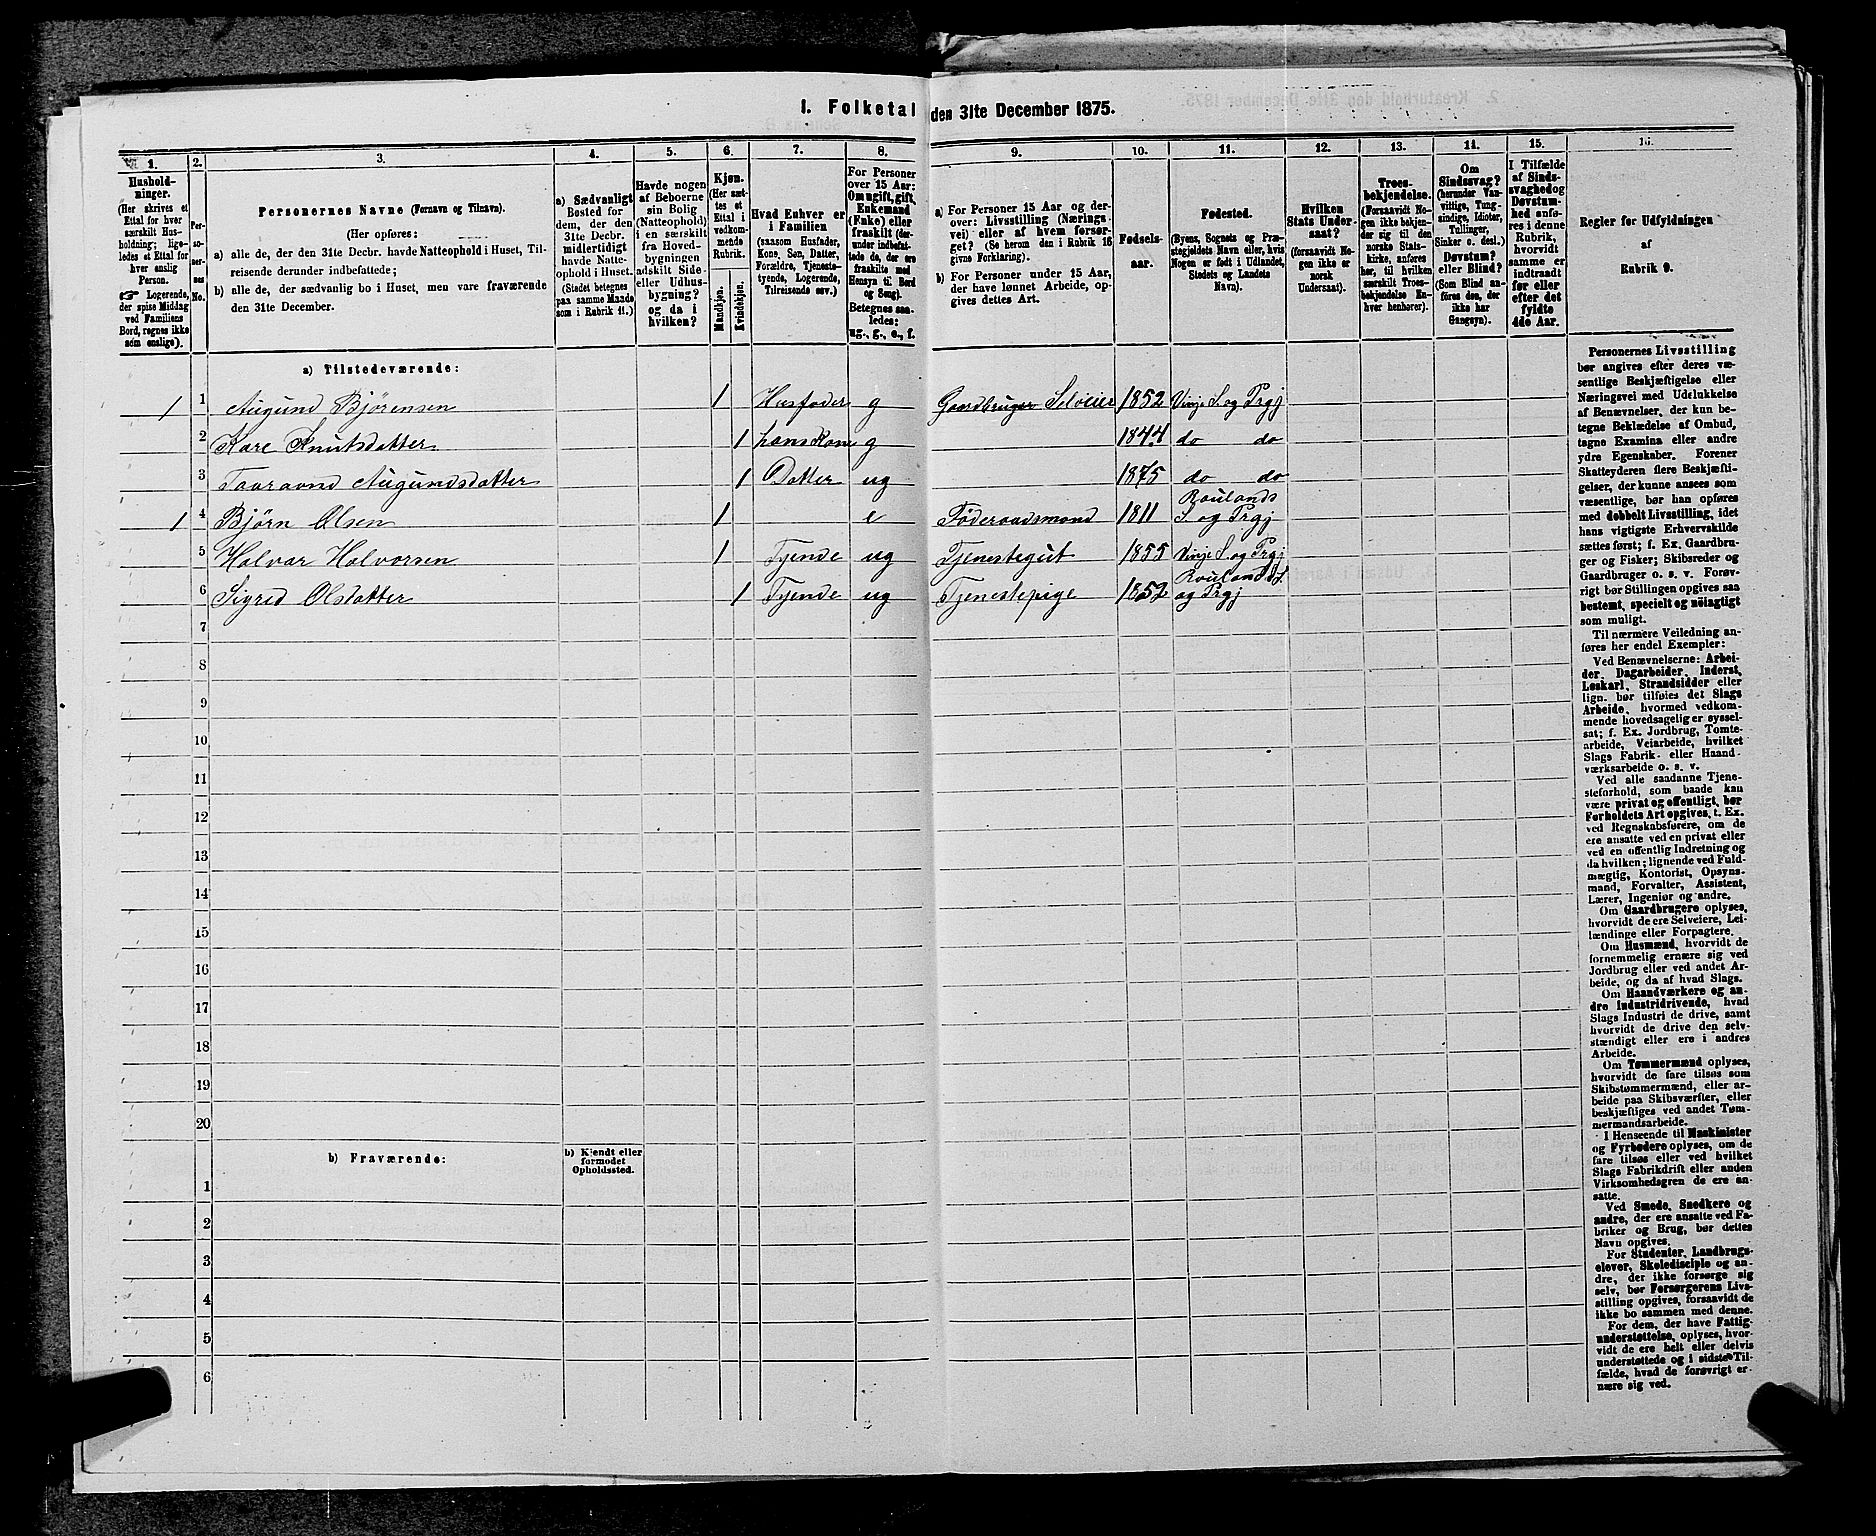 1. Folketal den 31te December 1875.
1. 2. 3. 4. 5. 6. 7. 8. 9. 10. 11. 12. 13. 14. 15. 16.
Husholdninger.
(Her skrives et
Ettal for hver
særskilt Husholdning;
ligeledes et Ettal for
hver enslig
Person.
☞ Logerende,
der spise Middag
ved Familiens
Bord, regnes ikke
som enslige).
Personernes No.
Personernes Navne (Fornavn og Tilnavn).
(Her opføres:
a) alle de, der den 31te Decbr. havde Natteophold i Huset, Tilreisende derunder indbefattede;
b) alle de, der sædvanlig bo i Huset, men vare fraværende
den 31te December.
a) Sædvanligt
Bosted for
dem, der den
31te Decbr.
midlertidigt
havde Natteophold i Huset.
(Stedet betegnes
paa samme Maade
som i Rubrik 11.)
Havde nogen
af Beboerne
sin Bolig
(Natteophold)
i en særskilt
fra Hovedbygningen
adskilt Side-
eller Udhusbygning?
og da i
hvilken?
Kjøn.
(Her sættes et
Ettal i
vedkommende
Rubrik.
Mandkjøn.
Kvindekjøn.
Hvad Enhver er
i Familien
(saasom Husfader,
Kone, Søn, Datter,
Forældre, Tjenestetyende, Logerende,
Tilreisende osv.)
For Personer
over 15 Aar:
Om ugift, gift,
Enkemand
(Enke) eller
fraskilt (derunder indbefattede de, der ere
fraskilte med
Hensyn til Bord
og Seng).
Betegnes saaledes:
ug., g., e., f.
a) For Personer 15 Aar og derover: Livsstilling (Næringsvei) eller af hvem forsørget? (Se herom den i Rubrik 16
givne Forklaring).
b) For Personer under 15 Aar,
der have lønnet Arbeide, opgives dettes Art.
Fødselsaar.
Fødested.
(Byens, Sognets og Præstegjeldets Navn eller, hvis
Nogen er født i Udlandet,
Stedets og Landets
Navn).
Hvilken
Stats Undersaat?
(forsaavidt Nogen ikke er
norsk
Undersaat).
Troesbekjendelse.
(Forsaavidt Nogen ikke bekjender sig til den
norske Statskirke, anføres her, til hvilken
særskilt Troesbekjendelse Enhver henhører).
Om
Sindssvag?
(herunder Vanvittige, Tungsindige, Idioter,
Tullinger,
Sinker o. desl.).
Døvstum?
eller Blind?
(Som Blind anføres den, der
ikke har
Gangsyn).
I Tilfælde
af Sindssvaghed og
Døvstumhed anføres i denne
Rubrik,
hvorvidt
samme er
indtraadt
før eller
efter det
fyldte
4de Aar.
Regler for Udfyldningen
af
Rubrik 9.
a) Tilstedeværende:
1 1 Augund Bjørensen 1 Husfader g Gaardbruger Selveier 1852 Vinje S. og Prgj
2 Kare Knutsdatter 1 hans Kone g 1844 do do
3 Taaraand Augundsdatter 1 Datter ug 1875 do do
1 4 Bjørn Olsen 1 e Føderaadsmand 1811 Raulands S. og Prgj
5 Halvar Halvorsen 1 Tjende ug Tjenestegut 1855 Vinje S. og Prgj
6 Sigrid Olsdatter 1 Tjende ug Tjenestepige 1852 Raulands S. og Prgj
7
8
9
10
11
12
13
14
15
16
17
18
19
20
b) Fraværende:
b) Kjendt eller
formodet
Opholdssted.
1
2
3
4
5
6
Personernes Livsstilling
bør angives efter deres væsentlige Beskjæftigelse eller
Næringsvei med Udelukkelse
af Benævnelser, der kun betegne Beklædelse af Ombud,
tagne Examina eller andre
ydre Egenskaber. Forener
Skatteyderen flere Beskjæftigelser, der kunne ansees som
væsentlige, bør han opføres
med dobbelt Livsstilling, idet
hans vigtigste Erhvervskilde
sættes først; f. Ex. Gaardbruger og Fisker; Skibsreder og
Gaardbruger o. s. v. Forøvrigt bør Stillingen opgives saa
bestemt, specielt og nøiagtigt
som muligt.
Til nærmere Veiledning anføres her endel Exempler:
Ved Benævnelserne: Arbeider, Dagarbeider, Inderst,
Løskarl, Strandsidder eller
lign. bør tilføies det Slags
Arbeide, hvormed vedkommende hovedsagelig er sysselsat; f. Ex. Jordbrug, Tomtearbeide, Veiarbeide, hvilket
Slags Fabrik- eller Haandværksarbeide o. s. v.
Ved alle saadanne Tjenesteforhold, som baade kan
være privat og offentligt, bør
Forholdets Art opgives, t. Ex.
ved Regnskabsførere, om de
ere ansatte ved en privat eller
ved en offentlig Indretning og
da hvilken; lignende ved Fuldmægtig, Kontorist, Opsynsmand, Forvalter, Assistent,
Lærer, Ingeniør og andre.
Om Gaardbrugere oplyses,
hvorvidt de ere Selveiere, Leilændinge eller Forpagtere.
Om Husmænd, hvorvidt de
fornemmelig ernære sig ved
Jordbrug eller ved andet Arbeide, og da af hvad Slags.
Om Haandværkere og andre Industridrivende, hvad
Slags Industri de drive, samt
hvorvidt de drive den selvstændigt eller ere i andres
Arbeide.
Om Tømmermænd oplyses,
hvorvidt de fare tilsøs som
Skibstømmermænd, eller arbeide paa Skibsværfter, eller
beskjæftiges ved andet Tømmermandsarbeide.
I Henseende til Maskinister
og Fyrbødere oplyses, om de
fare tilsøs eller ved hvilket
Slags Fabrikdrift eller anden
Virksomhedsgren de ere ansatte.
Ved Smede, Snedkere og
andre, der ere ansatte ved Fabriker og Brug, bør dettes
Navn opgives.
For Studenter, Landbrugselever, Skoledisciple og andre, der ikke forsørge sig
selv, bør Forsørgerens Livsstilling opgives, forsaavidt de
ikke bo sammen med denne.
For dem, der have Fattigunderstøttelse, oplyses, hvorvidt de ere helt eller delvis
understøttede og i sidste Tilfælde, hvad de forøvrigt ernære sig ved.